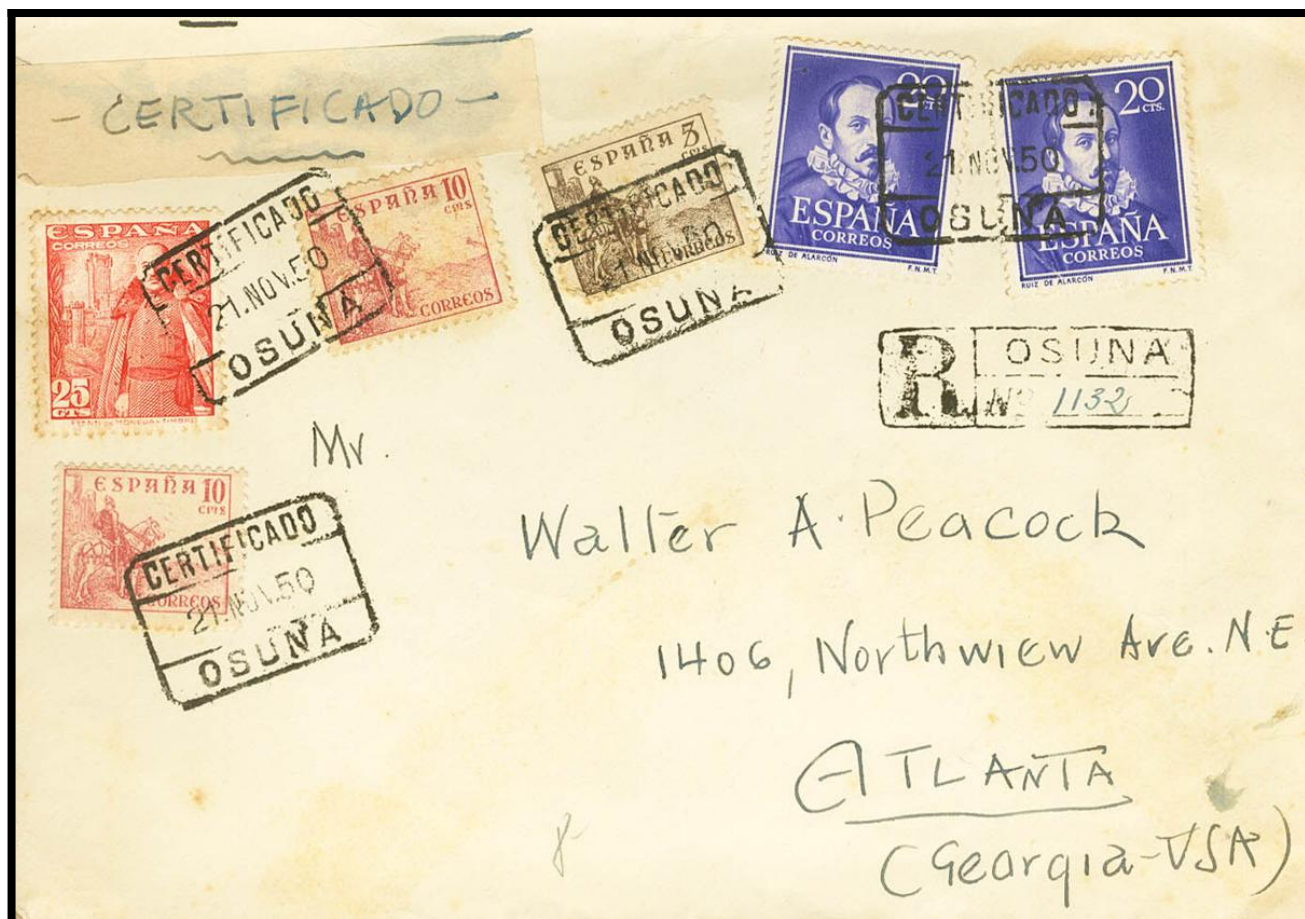 - CERTIFICADO -
ESPAÑA
CORREOS
25
CTS
CERTIFICADO
21.NOV.50
OSUNA
ESPAÑA 10
CTS
CORREOS
ESPAÑA 3
CTS
CORREOS
CERTIFICADO
OSUNA
20
CTS.
ESPAÑA
CORREOS
RUIZ DE ALARCÓN F.N.M.T.
20
CTS.
ESPAÑA
CORREOS
RUIZ DE ALARCÓN F.N.M.T.
CERTIFICADO
21.NOV.50
OSUNA
R OSUNA
Nº 1132
ESPAÑA 10
CTS
CORREOS
CERTIFICADO
21.NOV.50
OSUNA
Mr.
Walter A. Peacock
1406, Northwiew Ave. N.E
ATLANTA
(Georgia-USA)